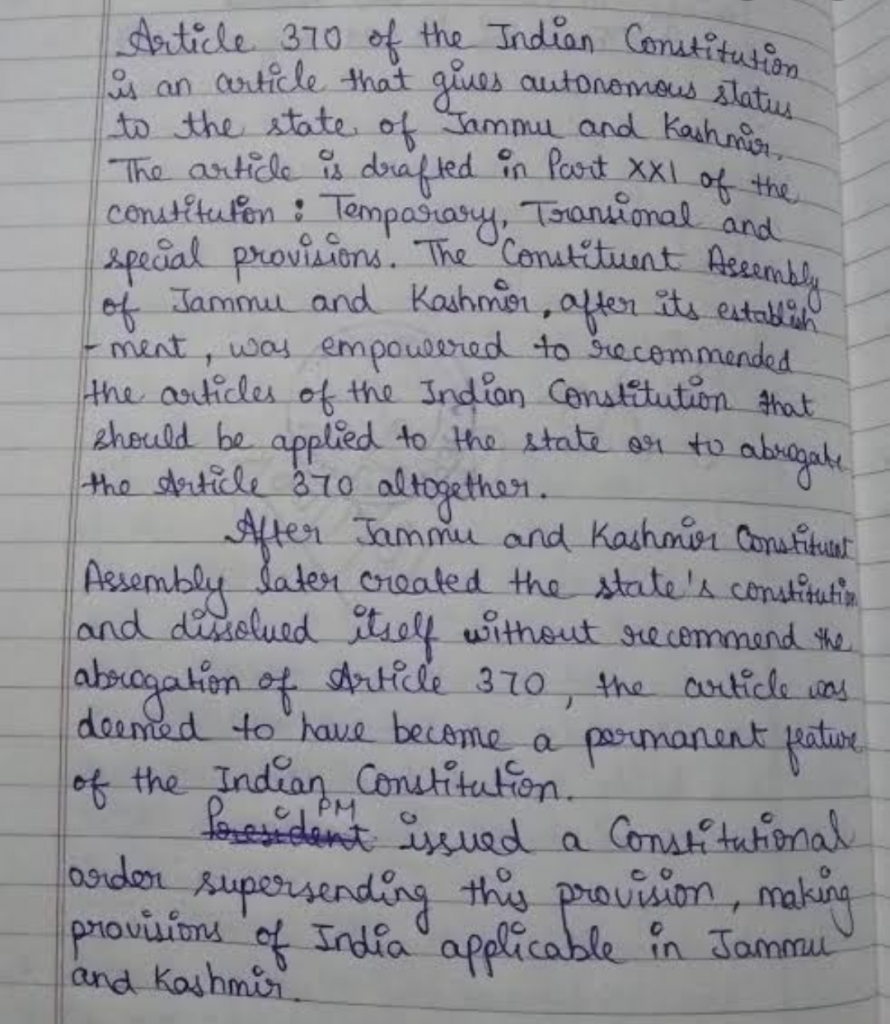 Article 370 of the Indian Constitution
is an article that gives autonomous status
to the state of Jammu and Kashmir.
The article is drafted in Part XXI of the
constituton : Temparary, Transional and
special provisions. The Constituent Assembly
of Jammu and Kashmir, after its establish
-ment, was empowered to recommended
the articles of the Indian Constitution that
should be applied to the state or to abrogate
the Article 370 altogether.
After Jammu and Kashmir Constituent
Assembly later created the state's constitution
and dissolved itself without recommend the
abrogation of Article 370, the article was
deemed to have become a permanent feature
of the Indian Constitution.
PM
President issued a Constitutional
order supersending this provision, making
provisions of India applicable in Jammu
and Kashmir.